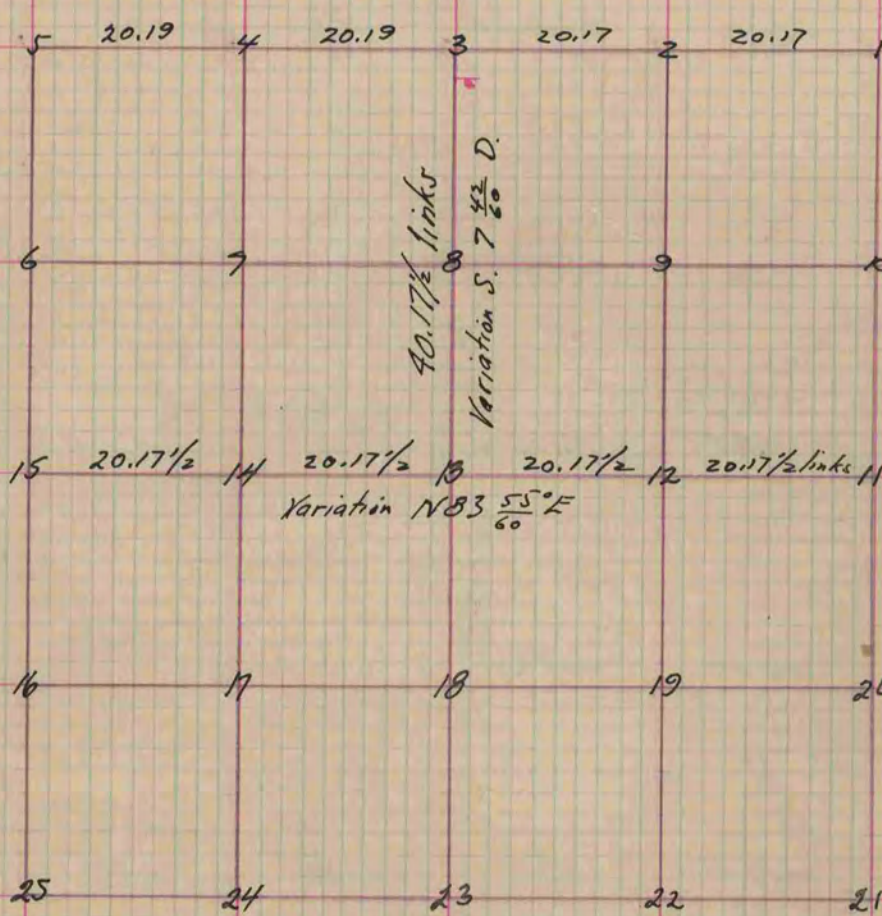 5 20.19 4 20.19 3 20.17 2 20.17 1
40.17 1/2 links
Variation S. 7 42/60 D.
6 7 8 9 10
15 20.17 1/2 14 20.17 1/2 13 20.17 1/2 12 20.17 1/2 links 11
Variation N83 55/60 °E
16 17 18 19 20
25 24 23 22 21